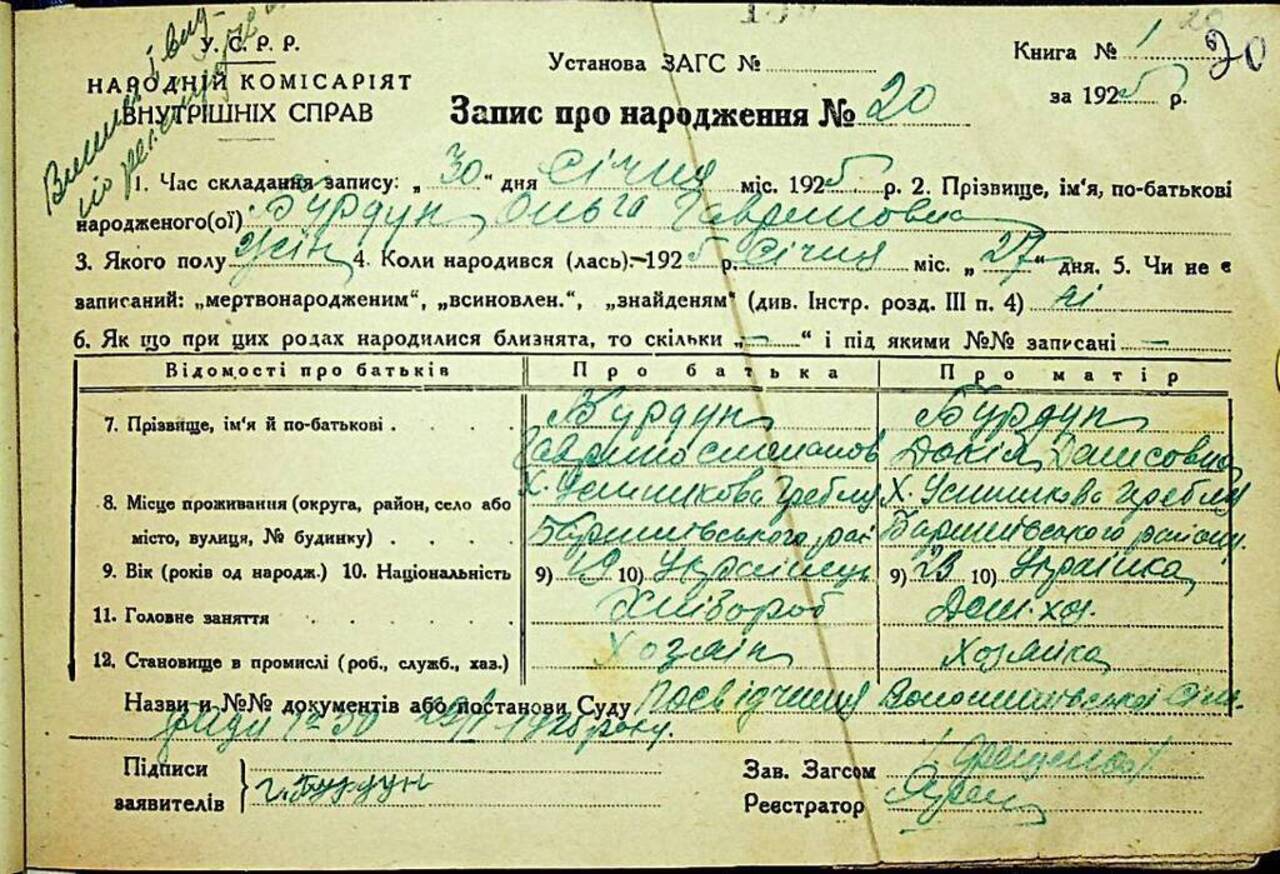 У. С. Р. Р.
НАРОДНІЙ КОМІСАРІЯТ
ВНУТРІШНІХ СПРАВ
Установа ЗАГС №
Книга № 1
20
за 1925 р.
Запис про народження № 20
1. Час складання запису: „ 30 “ дня Січня міс. 1925 р. 2. Прізвище, ім'я, по-батькові
народженого(ої) Бурдун Ольга Гавриловна
3. Якого полу жін 4. Коли народився (лась).–1925 р. Січня міс. „ 27 “ дня. 5. Чи не є
записаний: „мертвонародженим“, „всиновлен.“, „знайденям“ (див. Інстр. розд. III п. 4) ні
6. Як що при цих родах народилися близнята, то скільки „ — “ і під якими №№ записані —
Відомості про батьків Про батька Про матір
7. Прізвище, ім'я й по-батькові Бурдун Бурдун
Гаврило Степанов Докія Денисовна
8. Місце проживання (округа, район, село або Х. Усишкова Гребля Х. Усишкова Гребля
місто, вулиця, № будинку) Баришівського рай Баришівського району.
9. Вік (років од народж.) 10. Національність 9) 19 10) Українець 9) 23 10) Українка
11. Головне заняття Хлібороб Дом. хоз.
12. Становище в промислі (роб., служб., хаз.) Хозяін Хозяйка
Назви и №№ документів або постанови Суду Посвідчення Волошинівської Сіль.
ради № 30 1925 року.
Підписи
заявителів Г. Бурдун
Зав. Загсом
Реєстратор